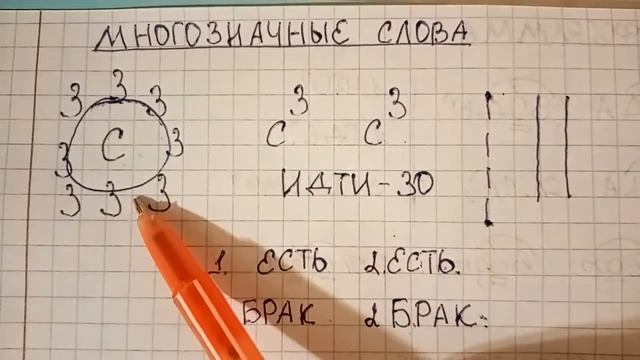 МНОГОЗНАЧНЫЕ СЛОВА
З З З
З С З
З З З
С З С З
ИДТИ - 30
1. ЕСТЬ 2. ЕСТЬ.
БРАК 2 БРАК: